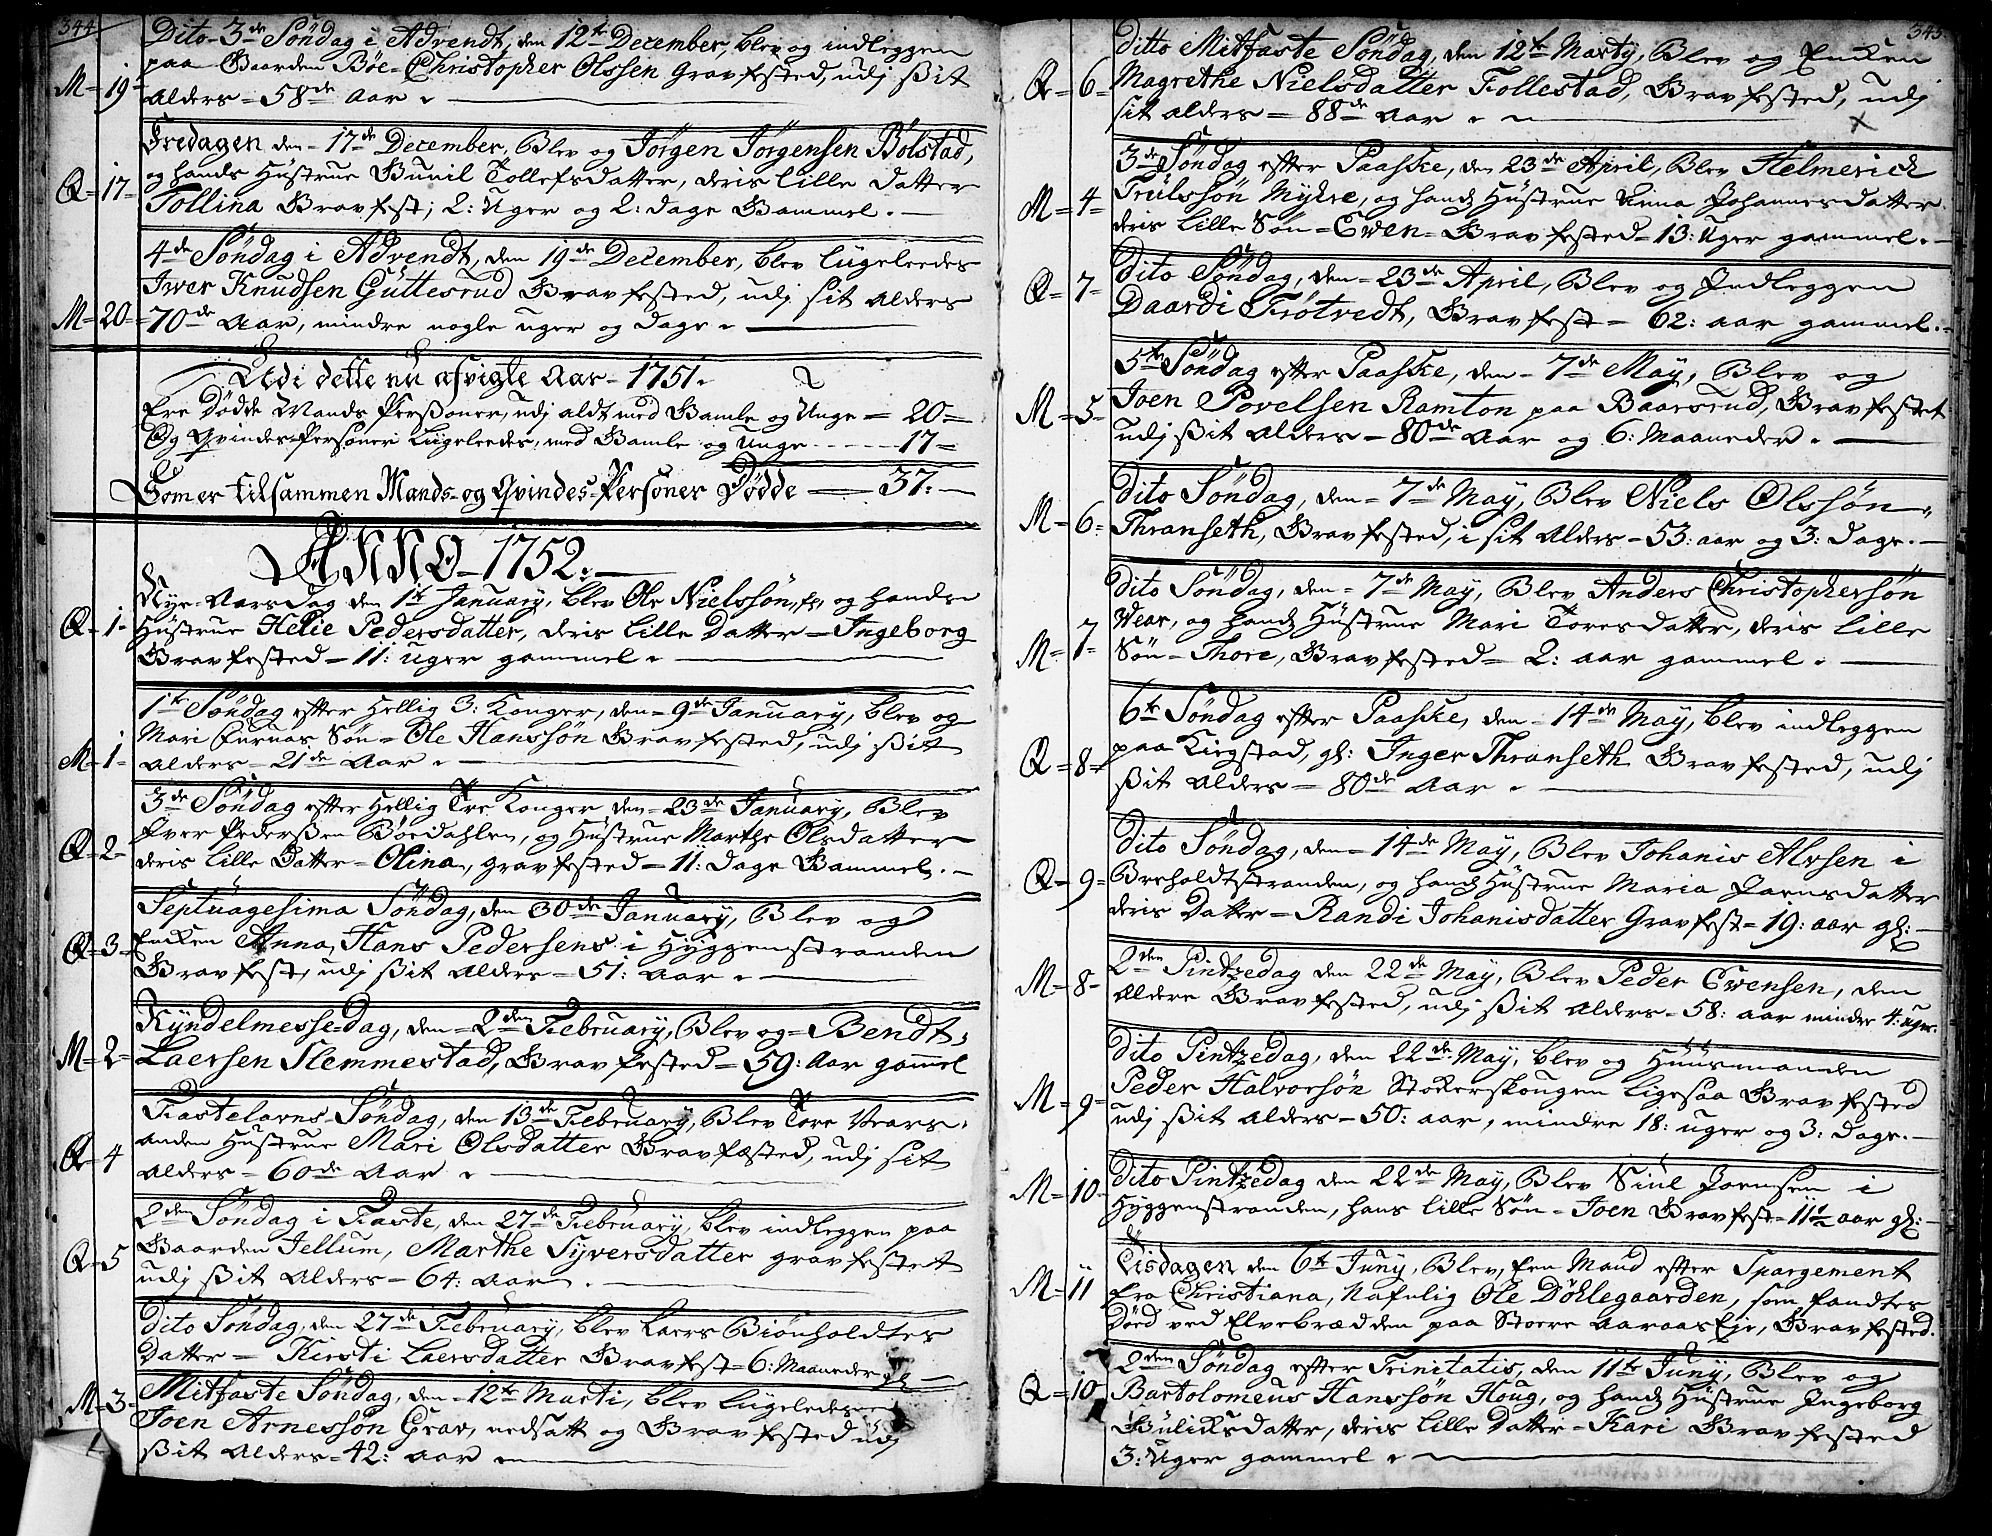 344
Dito 3de Söndag i Advendt, den 12te December, blev og indleggen
paa Gaarden Böe Christopher Olssen Gravfested, udj ßit
M 19
Alders 58de Aar.
Fredagen den 17de December, Blev og Jörgen Jörgensen Bölstad,
Q 17
og hands Hüstrue Gunil Tollefsdatter, deris lille Datter
Tollina Gravfest, 2: Uger og 2: dage Gammel.
4de Söndag i Advendt, den 19de December, blev lügeleedes
Iver Knudsen Güttesrud Gravfested, udj sit Alders
M 20
70de Aar, mindre nogle uger og dage.
Udi dette nu afvigte Aar 1751.
Ere Dödde Mands Perßoner, udj aldt med Gamle og Unge 20
Og Qvindes-Personer Lügeleedes, med Gamle og Unge 17
Som er tilsammen Mands og Qvindes-Personer Dödde 37.
ANNO 1752.
Nye-Aars Dag den 1te January, blev Ole Nielssön, og hands
Q 1
Hüstrue Helie Pedersdatter, deris lille Datter Ingeborg
Gravfested 11: uger gammel.
1te Söndag efter Hellig 3: Konger, den 9de January, blev og
Mari Sön Ole Hanssön Gravfested, udj ßit
M 1
Alders 21de Aar.
3de Söndag efter Hellig Tre Konger den 23de January, Blev
Iver Pederßen Böedahlen, og Hüstrue Marthe Olsdatter
Q 2
deris lille Datter Olina, gravfested 11: Dage Gammel.
Septuagesima Söndag, den 30de January, Blev og
Q 3
Encken Anna, Hans Pedersens i Hyggenstranden
Gravfest, udj ßit Alders 51: Aar.
Kyndelmessedag, den 2den February, Blev og Bendt
M 2
Laersen Slemmestad, Gravfested 59: Aar gamel
Fastelavns Söndag, den 13de February, Blev Tore Vears,
Q 4
anden Hüstrue Mari Olsdatter Gravfæsted, udj sit
Alders 60de Aar.
2den Söndag i Faste, den 27de February, blev indleggen paa
Q 5
Gaarden Jellum, Marthe Syversdatter gravfestet
udj ßit Alders 64: Aar.
Dito Söndag, den 27de February, blev Laers Biönholdtes
Datter Kirsti Laersdatter Gravfest 6: Maaneder gl
M 3
Mitfaste Söndag, den 12te Marti, blev Lügeledes
Joen Arnessön Grav, nedsatt og Gravfested udj
ßit Alders 42: Aar
345
Ditto Mitfaste Söndag, den 12te Marty, Blev og Encken
Q 6
Magrethe Nielsdatter Follestad, Gravfested, udj
sit alders 88de Aar.
3de Söndag efter Paaske, den 23de April, Blev Helmerick
M 4
Trulssön Mykre, og hands Hüstrue Anna Johannesdatter
deris Lille Sön Even Gravfested 13: Uger gammel.
Q 7
Dito Söndag, den 23de April, Blev og Indleggen
Daardi Frötvedt, Gravfest 62: aar gammel.
5te Söndag efter Paaske, den 7de May, Blev og
M 5
Joen Povelsen Ramton paa Baarsrud, Gravfestet
udj ßit Alders 80de Aar og 6: Maaneder.
Dito Söndag, den 7de May, Blev Niels Olssön
M 6
Thranseth, Gravfested, i sit Alders 53: aar og 3: Dage.
Dito Söndag, den 7de May, Blev Anders Christophersön
Vear, og hands Hüstrue Mari Toresdatter, deris lille
M 7
Sön Thore, Gravfested 2: aar gammel.
6te Söndag efter Paaske, den 14de May, blev indleggen
Q 8
paa Kirgstad, gl: Inger Thranseth Gravfested, udj
ßit Alders 80de Aar.
Dito Söndag, den 14de May, Blev Johanis Alvsen i
Q 9
Greholdtstranden, og hands Hüstrue Maria Joensdatter
deris Datter Randi Johanisdatter Gravfest 19: aar gl:
M 8
2den Pintzedag den 22de May, Blev Peder Evensen, den
Eldere Gravfested, udj ßit Alders 58: aar minder 4: uger.
Dito Pintzedag, den 22de May, blev og Huusmanden
M 9
Peder Halvorsön Stokerskougen ligesaa Gravfested
udj ßit Alders 50: aar, mindre 18: uger og 3: Dage.
M 10
Dito Pintzedag den 22de May, Blev Siul Joensen i
Hyggenstranden, hans lille Sön Joen Gravfest 11½ aar gl:
Tisdagen den 6te Juny, Blev, een Mand efter Spargement
M 11
fra Christiana, Nafnlig Ole Döhlegaarden, som fandtes
Död ved Elvebrædden paa Stoere Aaraas Eje, Gravfested.
2den Söndag efter Trinitatis, den 11te Juny, Blev og
Q 10
Bartolomeus Hanssön Houg, og hands Hüstrue Ingeborg
Gulicksdatter, deris Lille Datter Kari Gravfested
3: Uger gammel.